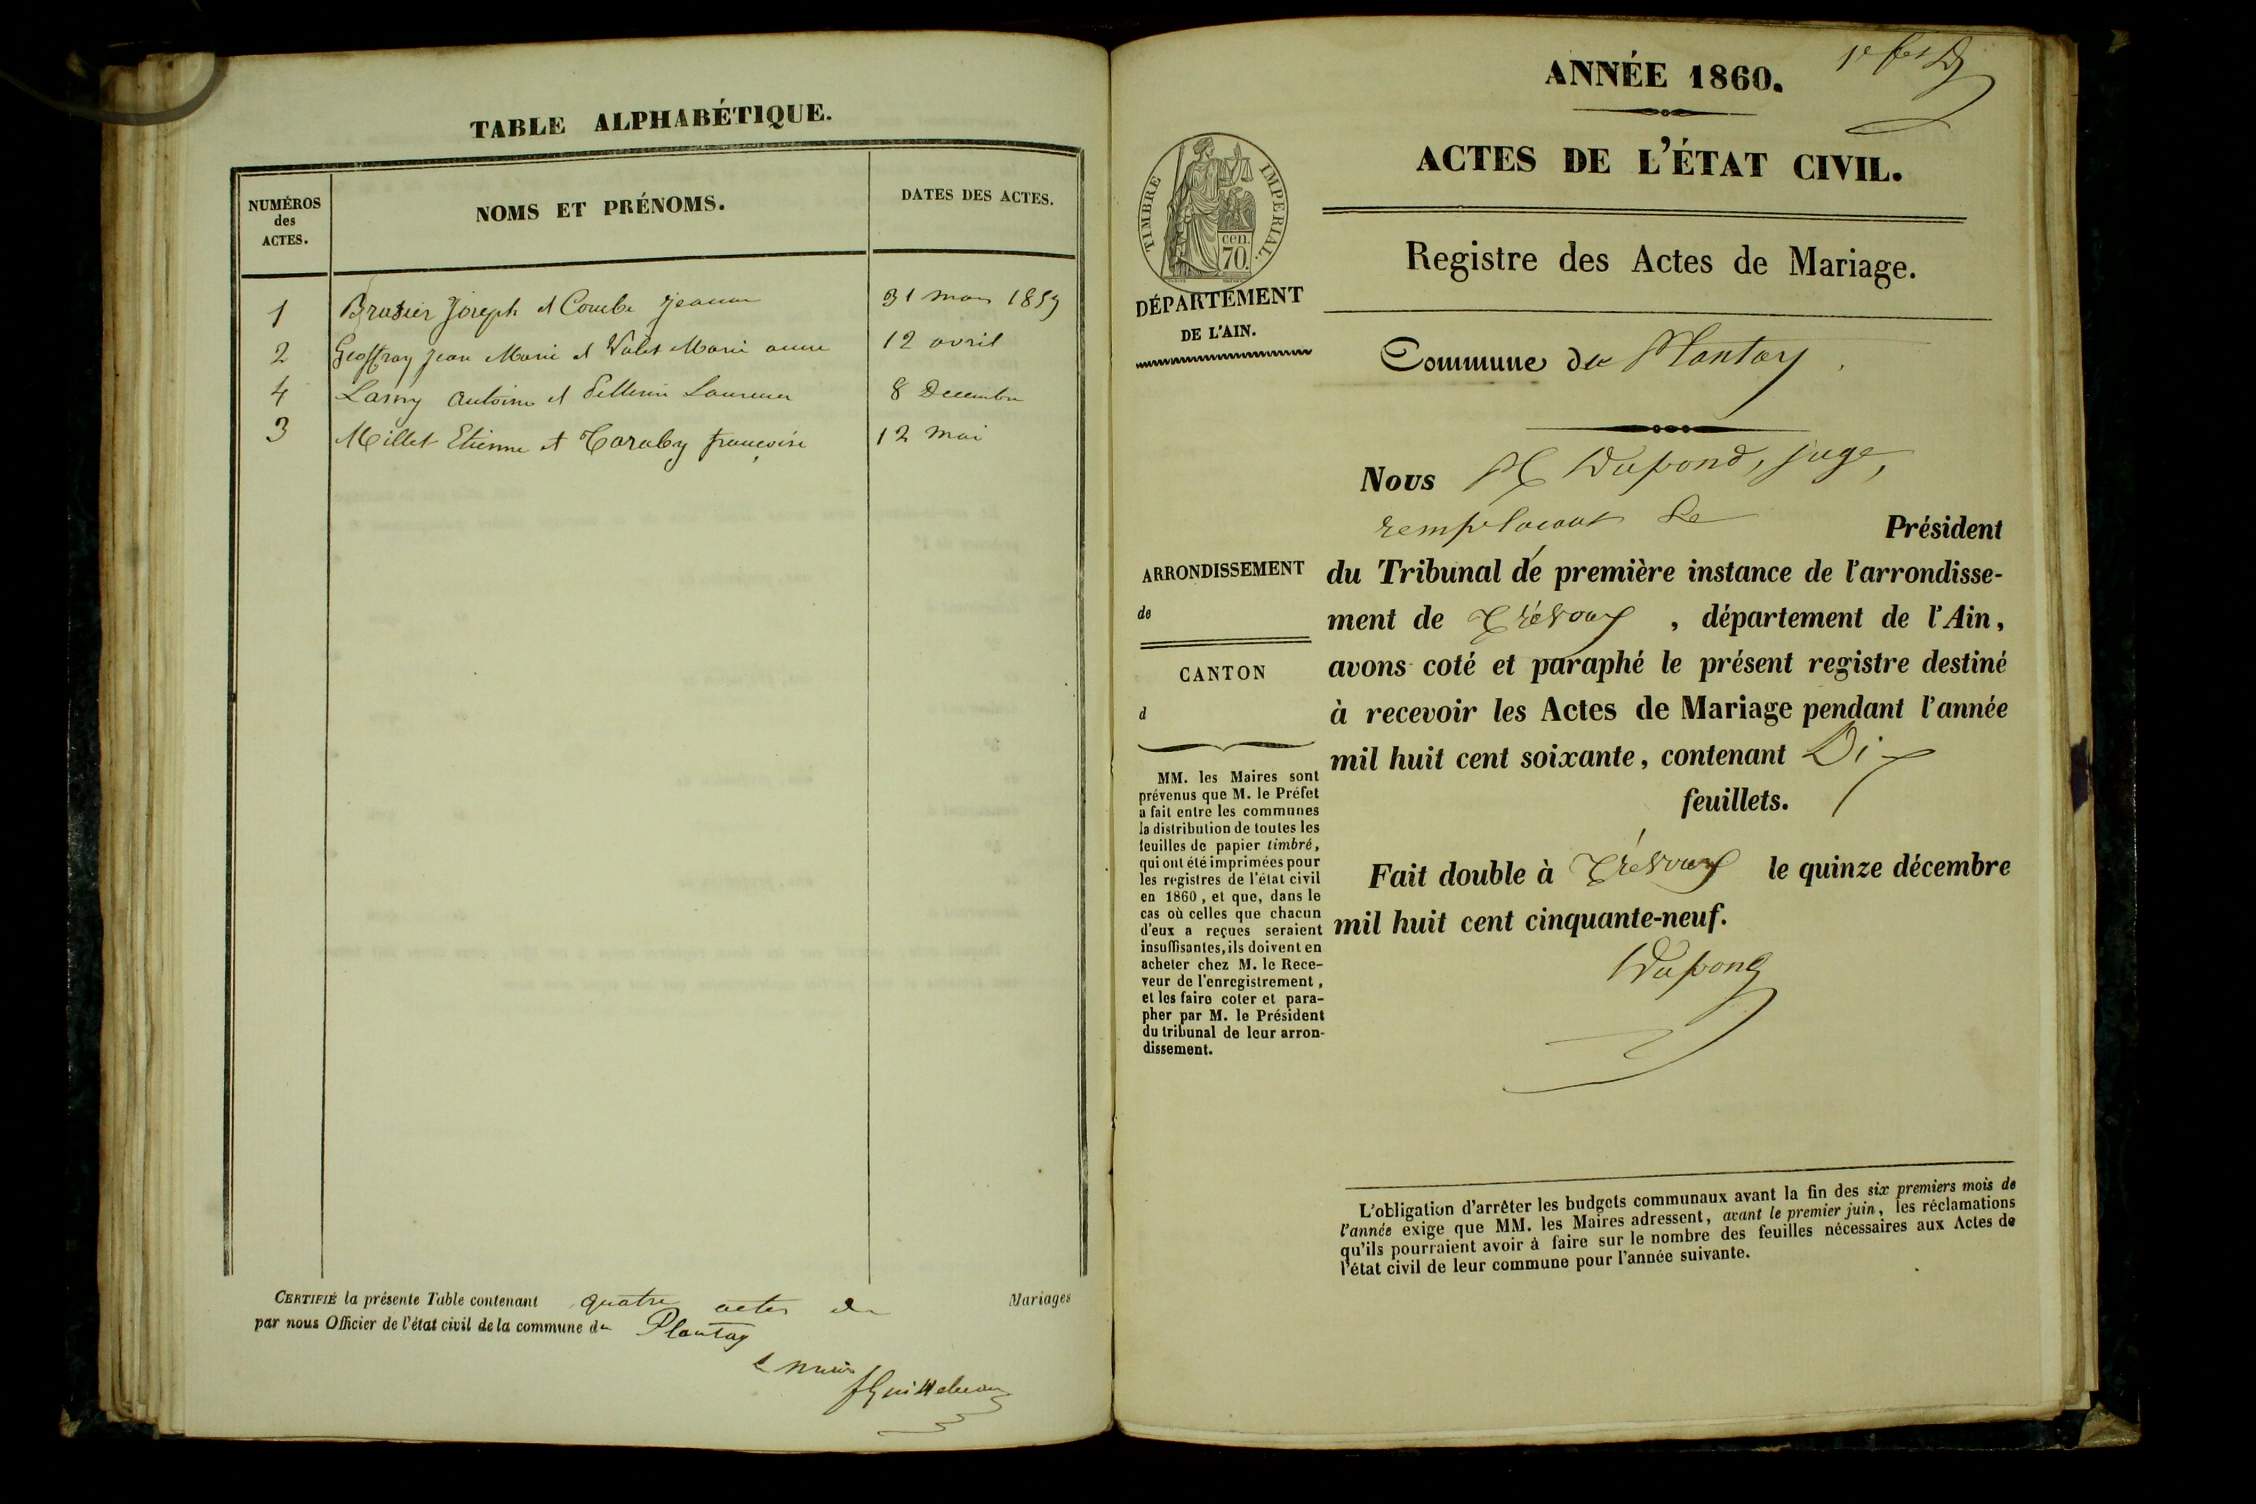 TABLE ALPHABÉTIQUE.
NUMÉROS
des
ACTES.
NOMS ET PRÉNOMS.
DATES DES ACTES.
1 Brasier Joseph et Combe Jeanne 31 mars 1859
2 Geoffray Jean Marie et Valet Marie anne 12 avril
4 Lamy Antoine et Pellerin Laurence 8 Decembre
3 Millet Etienne et Taraby françoise 12 mai
CERTIFIÉ la présente Table contenant quatre actes de Mariages
par nous Officier de l'état civil de la commune du Plantay
le maire
ANNÉE 1860.
ACTES DE L'ÉTAT CIVIL.
TIMBRE IMPERIAL.
cen.
70.
Registre des Actes de Mariage.
DÉPARTEMENT
DE L'AIN.
Commune du Plantay
Nous M Dupond, juge,
remplacant le Président
ARRONDISSEMENT
de
CANTON
d
du Tribunal de première instance de l'arrondisse-
ment de Trévoux, département de l'Ain,
avons coté et paraphé le présent registre destiné
à recevoir les Actes de Mariage pendant l'année
mil huit cent soixante, contenant Dix
feuillets.
Fait double à Trévoux le quinze décembre
mil huit cent cinquante-neuf.
Dupond
MM. les Maires sont
prévenus que M. le Préfet
a fait entre les communes
la distribution de toutes les
feuilles de papier timbré,
qui ont été imprimées pour
les registres de l'état civil
en 1860, et que, dans le
cas où celles que chacun
d'eux a reçues seraient
insuffisantes, ils doivent en
acheter chez M. le Rece-
veur de l'enregistrement,
et les faire coter et para-
pher par M. le Président
du tribunal de leur arron-
dissement.
L'obligation d'arrêter les budgets communaux avant la fin des six premiers mois de
l'année exige que MM. les Maires adressent, avant le premier juin, les réclamations
qu'ils pourraient avoir à faire sur le nombre des feuilles nécessaires aux Actes de
l'état civil de leur commune pour l'année suivante.